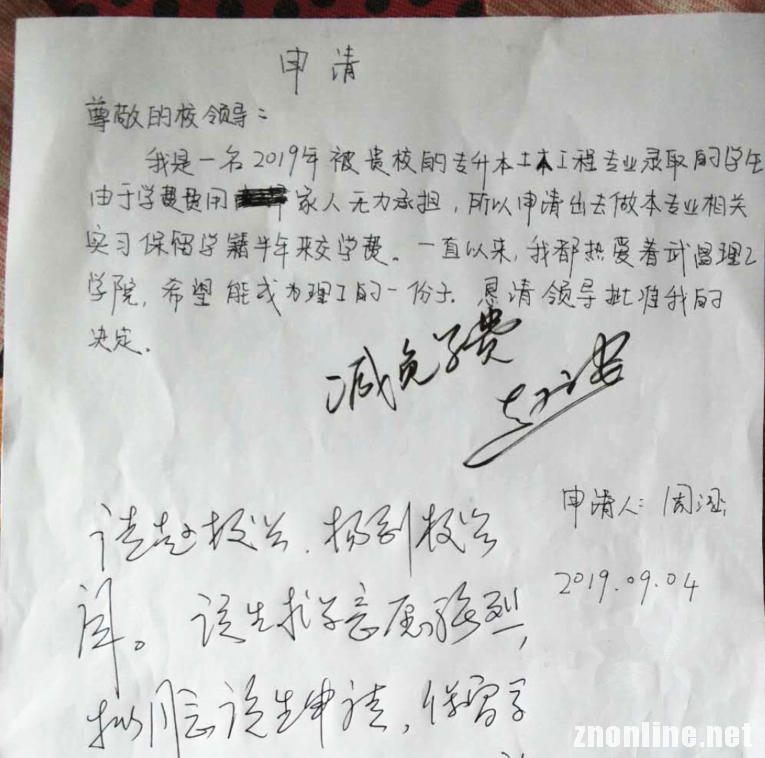 申请
尊敬的校领导:
我是一名2019年被贵校的专升本土木工程专业录取的学生
由于学费费用 家人无力承担,所以申请出去做本专业相关
实习保留学籍半年来交学费。一直以来,我都热爱着武昌理工
学院,希望能成为理工的一份子.恳请领导批准我的
决定.
减免学费
赵
申请人:周
2019.09.04
请赵校长、杨副校长
阅。该生求学意愿强烈,
拟同意该生申请,保留学
znonline.net